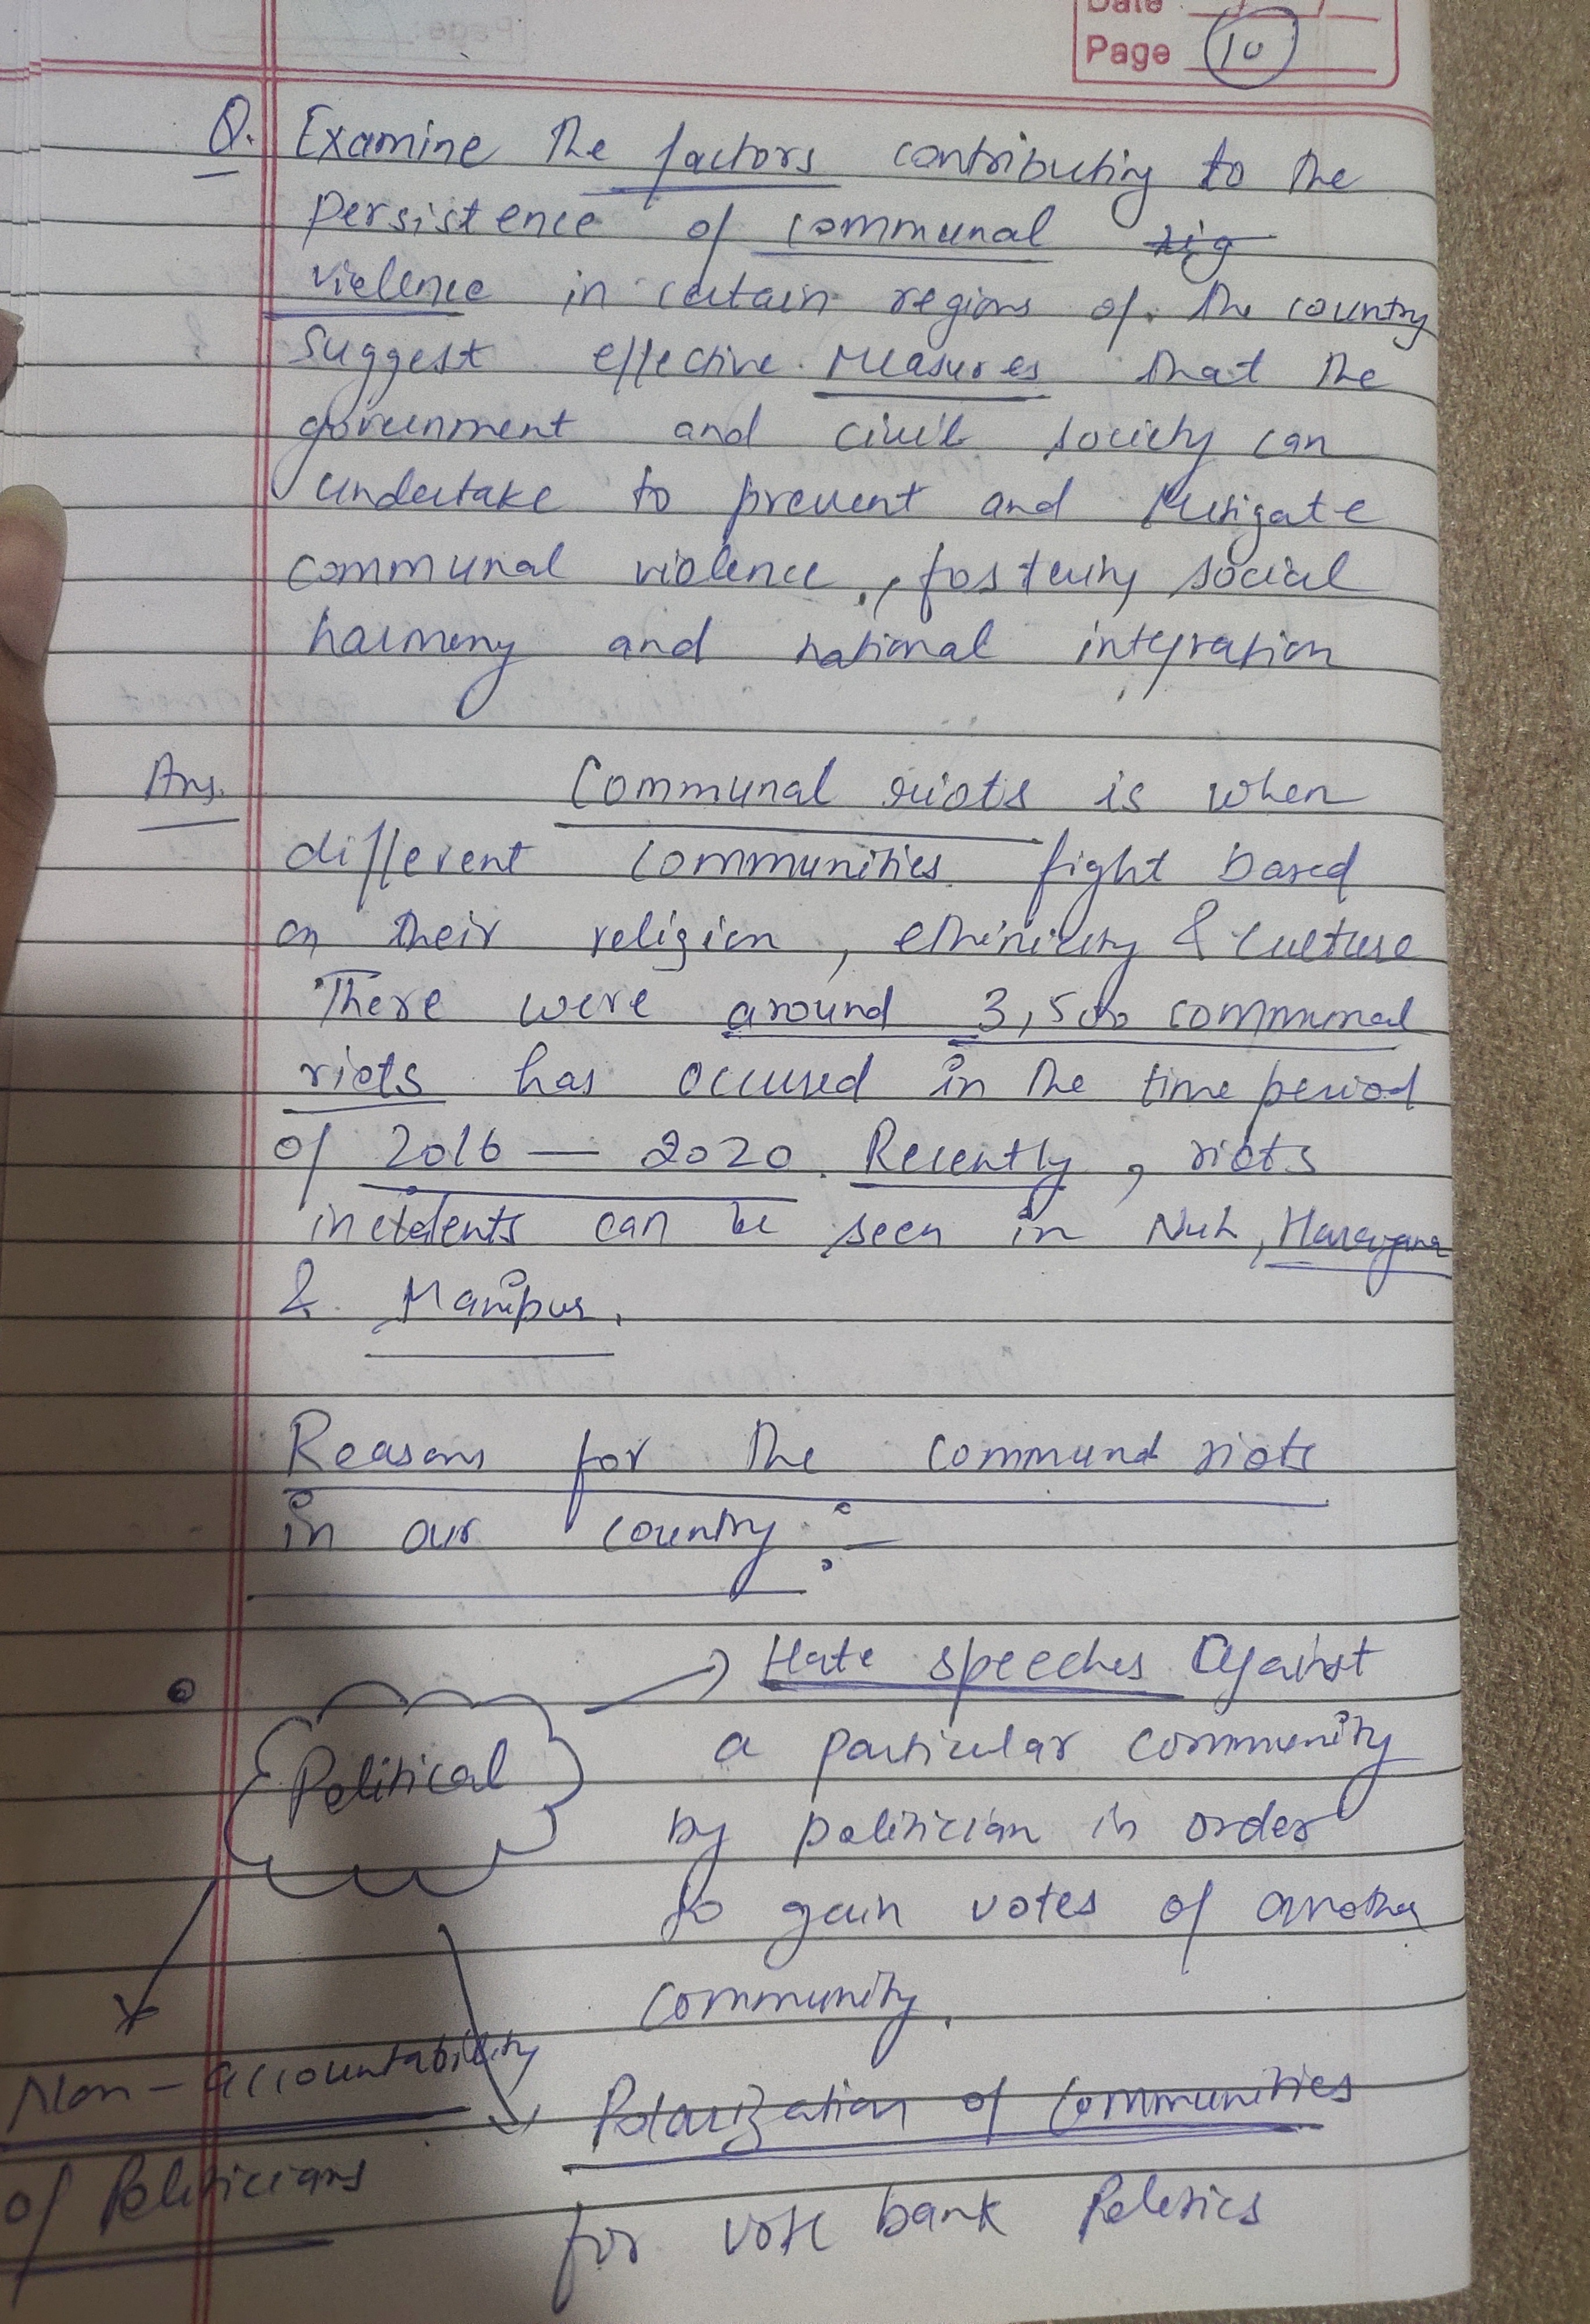 Date / /
Page 10
Q. Examine the factors contributing to the
persistence of communal rig
violence in certain regions of the country
Suggest effective measures that the
government and civil society can
undertake to prevent and mitigate
communal violence, fostering social
harmony and national integration
Ans. Communal riots is when
different communities fight based
on their religion, ethinicity & culture
There were around 3,500 communal
riots has occured in the time period
of 2016 — 2020. Recently, riots
incidents can be seen in Nuh, Harayana
& Manipur.
Reasons for the communal riots
in our country :-
Political
→ Hate speeches against
a particular community
by politician in order
to gain votes of another
community.
Non-accountability
of Politicians
Polarization of communities
for vote bank Politics